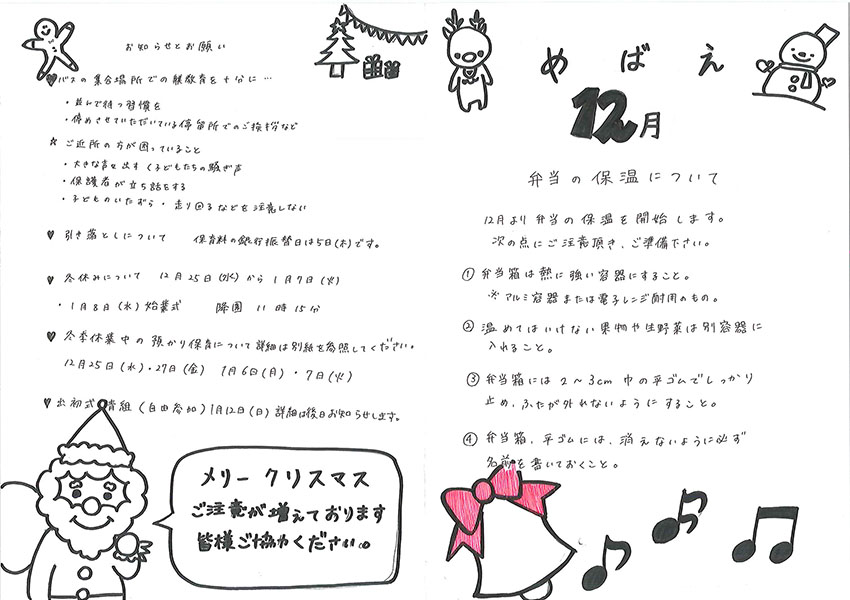 お知らせとお願い
♥バスの集合場所での躾教育を十分に…
・並んで待つ習慣を
・停めさせていただいている停留所でのご挨拶など
☆ ご近所の方が困っていること
・大きな声を出す く子どもたちの騒ぎ声
・保護者が立ち話をする
・子どものいたずら・走り回るなどを注意しない
♥ 引き落としについて 保育料の銀行振替日は5日(木)です。
♥ 冬休みについて 12月25日(水)から1月7日(火)
・1月8日(水)始業式 降園 11時15分
♥ 冬季休業中の預かり保育について詳細は別紙を参照してください。
12月25日(水)・27日(金) 1月6日(月)・7日(火)
♥出初式 青組(自由参加)1月12日(日)詳細は後日お知らせします。
メリークリスマス
ご注意が増えております
皆様ご協力ください。
めばえ
12月
弁当の保温について
12月より弁当の保温を開始します。
次の点にご注意頂き、ご準備下さい。
① 弁当箱は熱に強い容器にすること。
※アルミ容器または電子レンジ耐用のもの。
② 温めてはいけない果物や生野菜は別容器に
入れること。
③ 弁当箱には2〜3cm巾の平ゴムでしっかり
止め、ふたが外れないようにすること。
④ 弁当箱、平ゴムには、消えないように必ず
名前を書いておくこと。